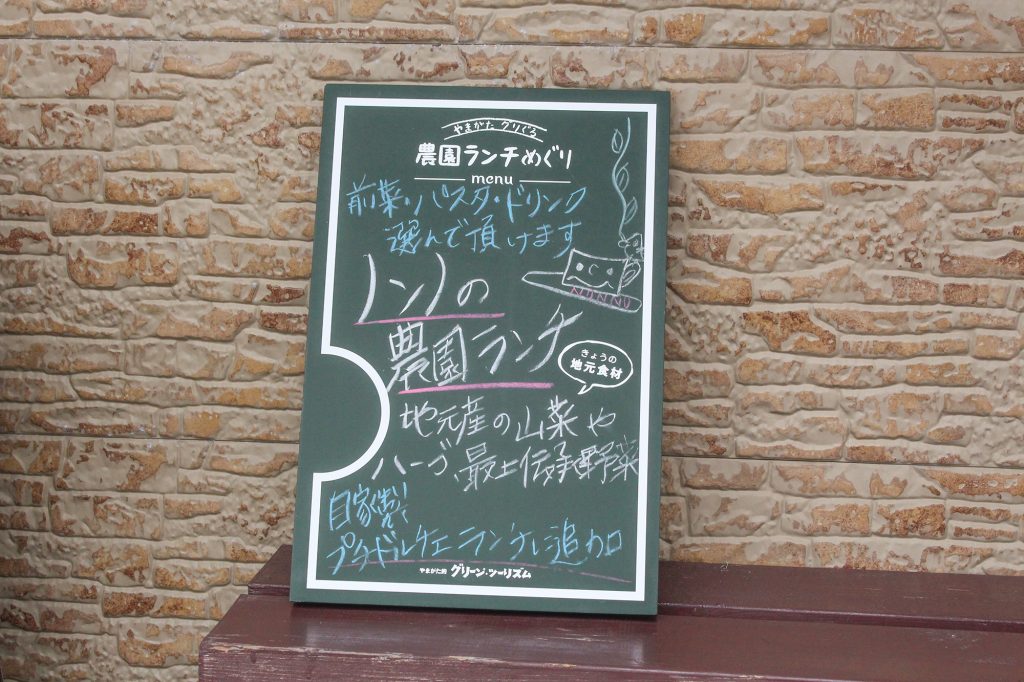 やまがた グリぐる
農園ランチめぐり
menu
前菜・パスタ・ドリンク
選んで頂けます
NONNO
ノンノの
農園ランチ
きょうの
地元食材
地元産の山菜や
ハーブ、最上伝承野菜
自家製!
プラチドルチェ ランチに追加
やまがた的 グリーン・ツーリズム